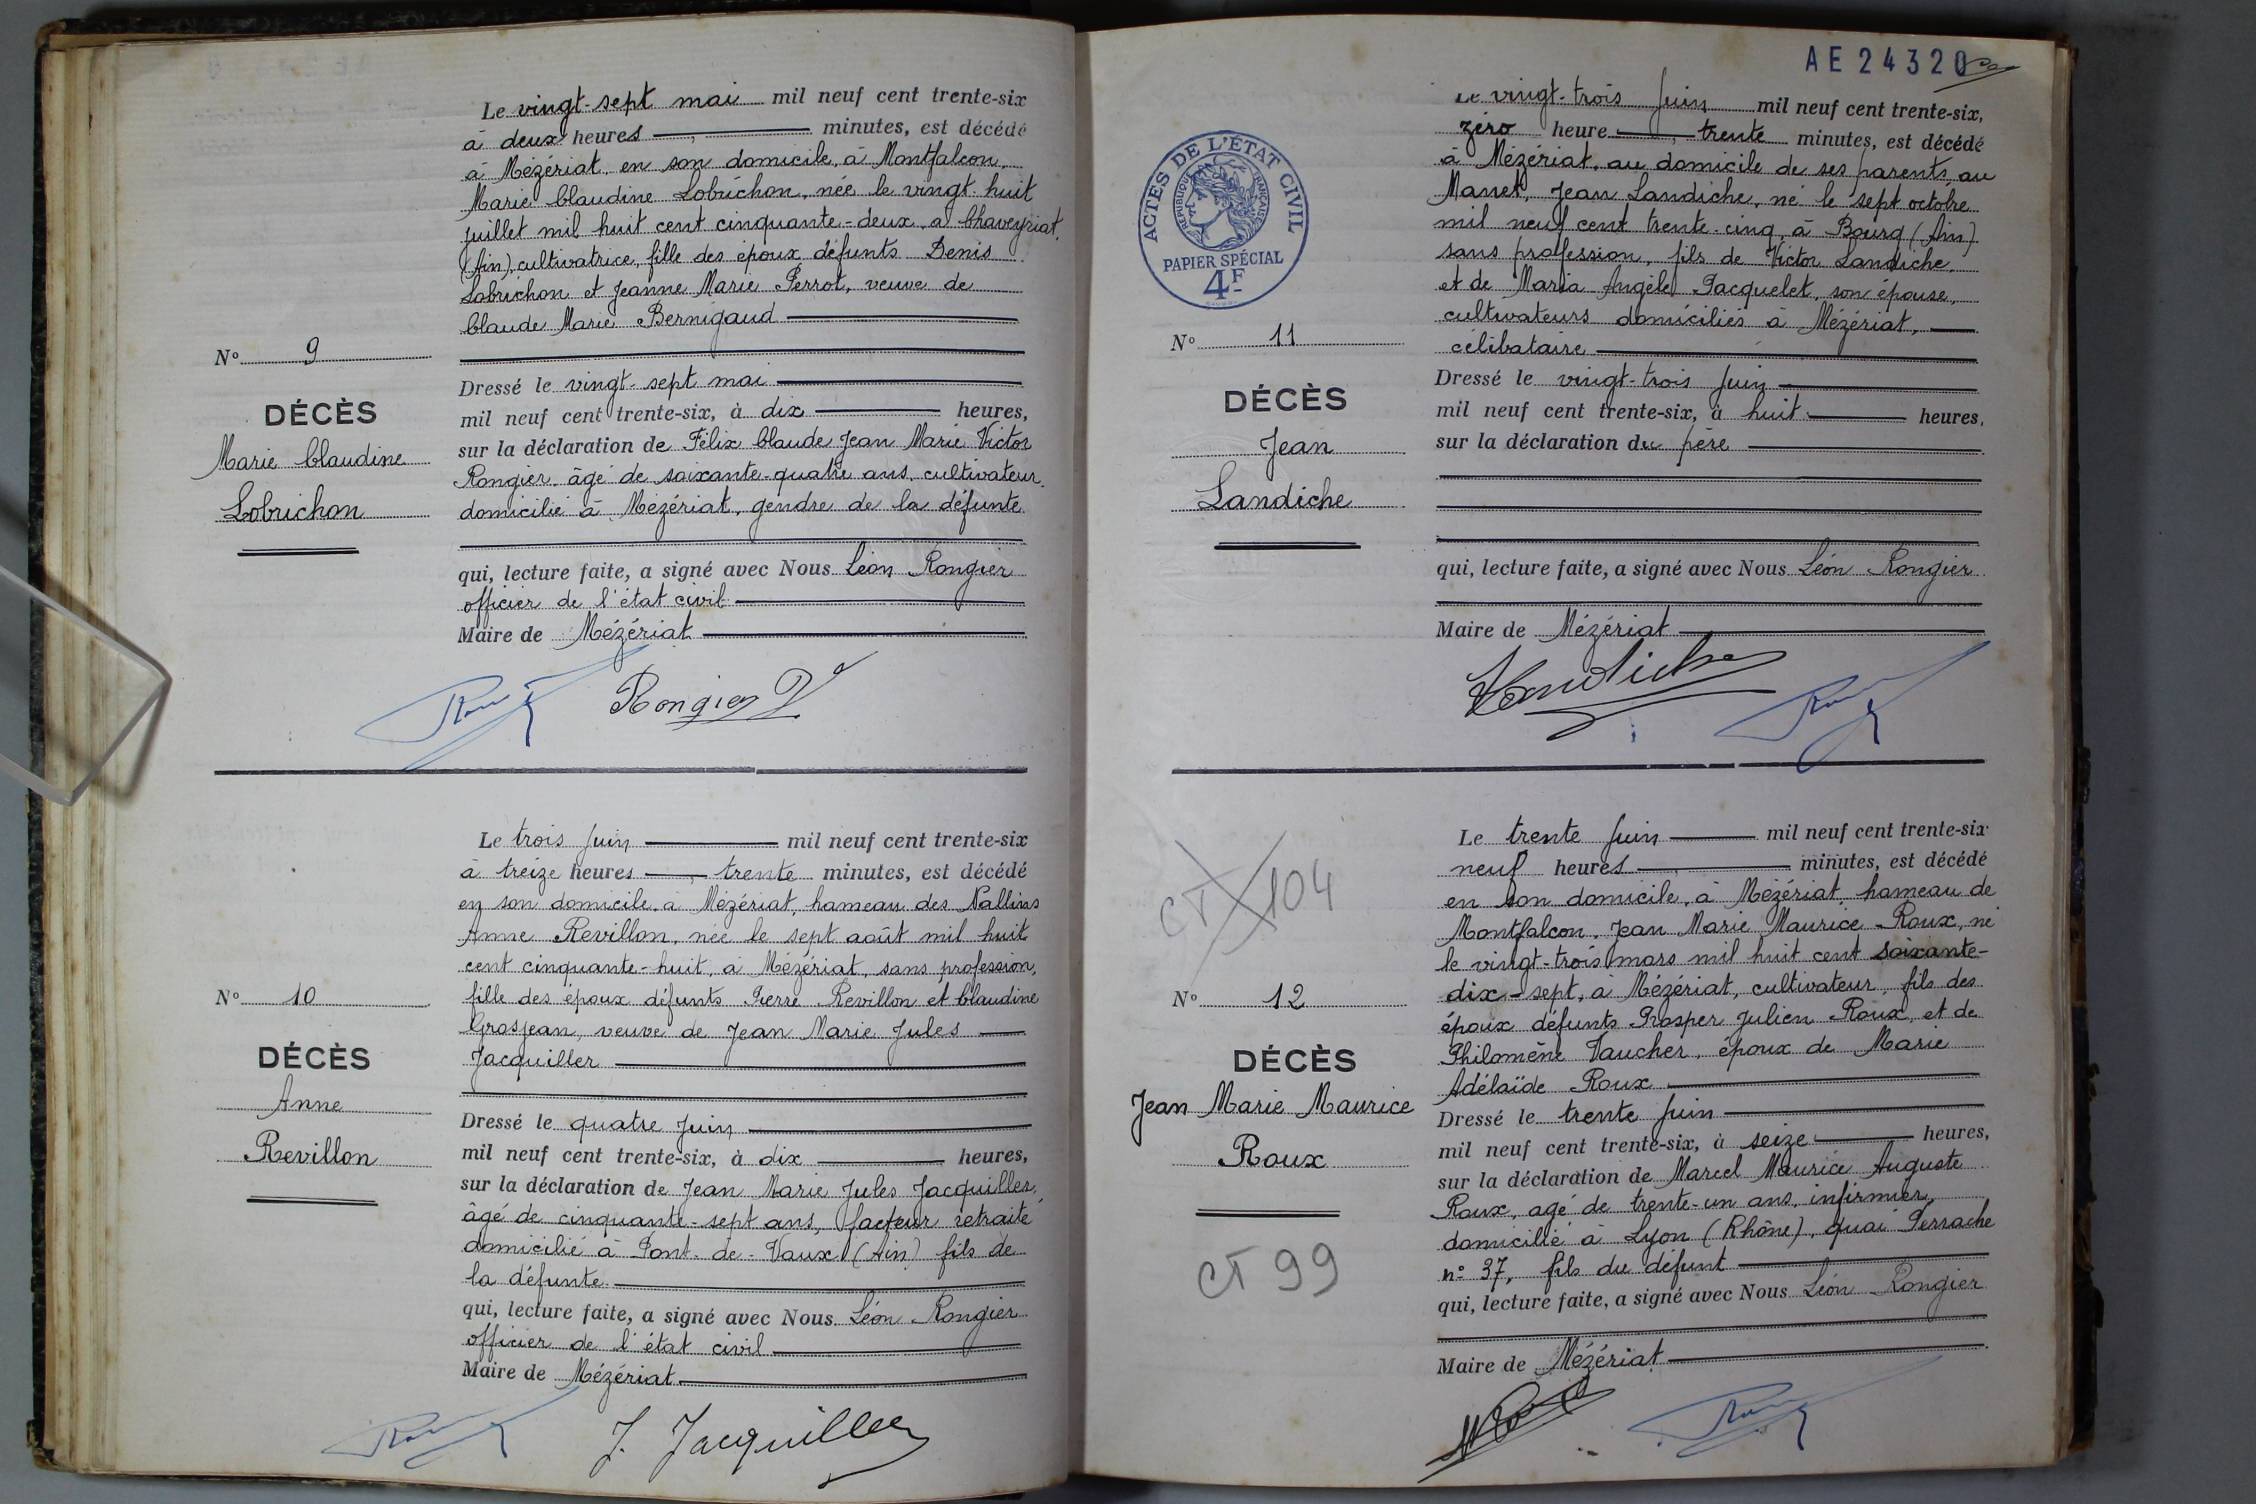 Le vingt-sept mai mil neuf cent trente-six
à deux heures minutes, est décédé
à Mézériat, en son domicile, à Montfalcon
Marie Claudine Lobrichon, née le vingt-huit
juillet mil huit cent cinquante-deux, à Chaveyriat
(Ain), cultivatrice, fille des époux défunts Denis
Lobrichon et Jeanne Marie Perrot, veuve de
Claude Marie Bernigaud
N° 9
DÉCÈS
Marie Claudine
Lobrichon
Dressé le vingt-sept mai
mil neuf cent trente-six, à dix heures,
sur la déclaration de Félix Claude Jean Marie Victor
Rongier, âgé de soixante-quatre ans, cultivateur,
domicilié à Mézériat, gendre de la défunte
qui, lecture faite, a signé avec Nous Léon Rongier
officier de l'état civil
Maire de Mézériat
Rongier V
Le trois Juin mil neuf cent trente-six
à treize heures, trente minutes, est décédé
en son domicile, à Mézériat, hameau des Nallins
Anne Revillon, née le sept août mil huit
cent cinquante-huit, à Mézériat, sans profession,
fille des époux défunts Pierre Revillon et Claudine
Grosjean, veuve de Jean Marie Jules
Jacquiller
N° 10
DÉCÈS
Anne
Revillon
Dressé le quatre Juin
mil neuf cent trente-six, à dix heures,
sur la déclaration de Jean Marie Jules Jacquiller,
âgé de cinquante-sept ans, facteur retraité
domicilié à Pont-de-Vaux (Ain) fils de
la défunte
qui, lecture faite, a signé avec Nous Léon Rongier
officier de l'état civil
Maire de Mézériat
J. Jacquiller
AE24320
ACTES DE L'ÉTAT CIVIL
RÉPUBLIQUE FRANÇAISE
PAPIER SPÉCIAL
4F
Le vingt-trois Juin mil neuf cent trente-six,
zéro heure, trente minutes, est décédé
à Mézériat, au domicile de ses parents, au
Manet, Jean Landiche, né le sept octobre
mil neuf cent trente-cinq, à Bourg (Ain)
sans profession, fils de Victor Landiche,
et de Maria Angèle Pacquelet, son épouse,
cultivateurs domiciliés à Mézériat,
célibataire
N° 11
DÉCÈS
Jean
Landiche
Dressé le vingt-trois Juin
mil neuf cent trente-six, à huit heures,
sur la déclaration du père
qui, lecture faite, a signé avec Nous Léon Rongier
Maire de Mézériat
Landiche
Le trente Juin mil neuf cent trente-six
neuf heures minutes, est décédé
en son domicile, à Mézériat, hameau de
Montfalcon, Jean Marie Maurice Roux, né
le vingt-trois mars mil huit cent soixante-
dix-sept, à Mézériat, cultivateur, fils des
époux défunts Prosper Julien Roux, et de
Philomène Vaucher, époux de Marie
Adélaïde Roux
CT 104
N° 12
DÉCÈS
Jean Marie Maurice
Roux
CT 99
Dressé le trente Juin
mil neuf cent trente-six, à seize heures,
sur la déclaration de Marcel Maurice Auguste
Roux, agé de trente-un ans, infirmier,
domicilié à Lyon (Rhône), quai Perrache
n° 37, fils du défunt
qui, lecture faite, a signé avec Nous Léon Rongier
Maire de Mézériat